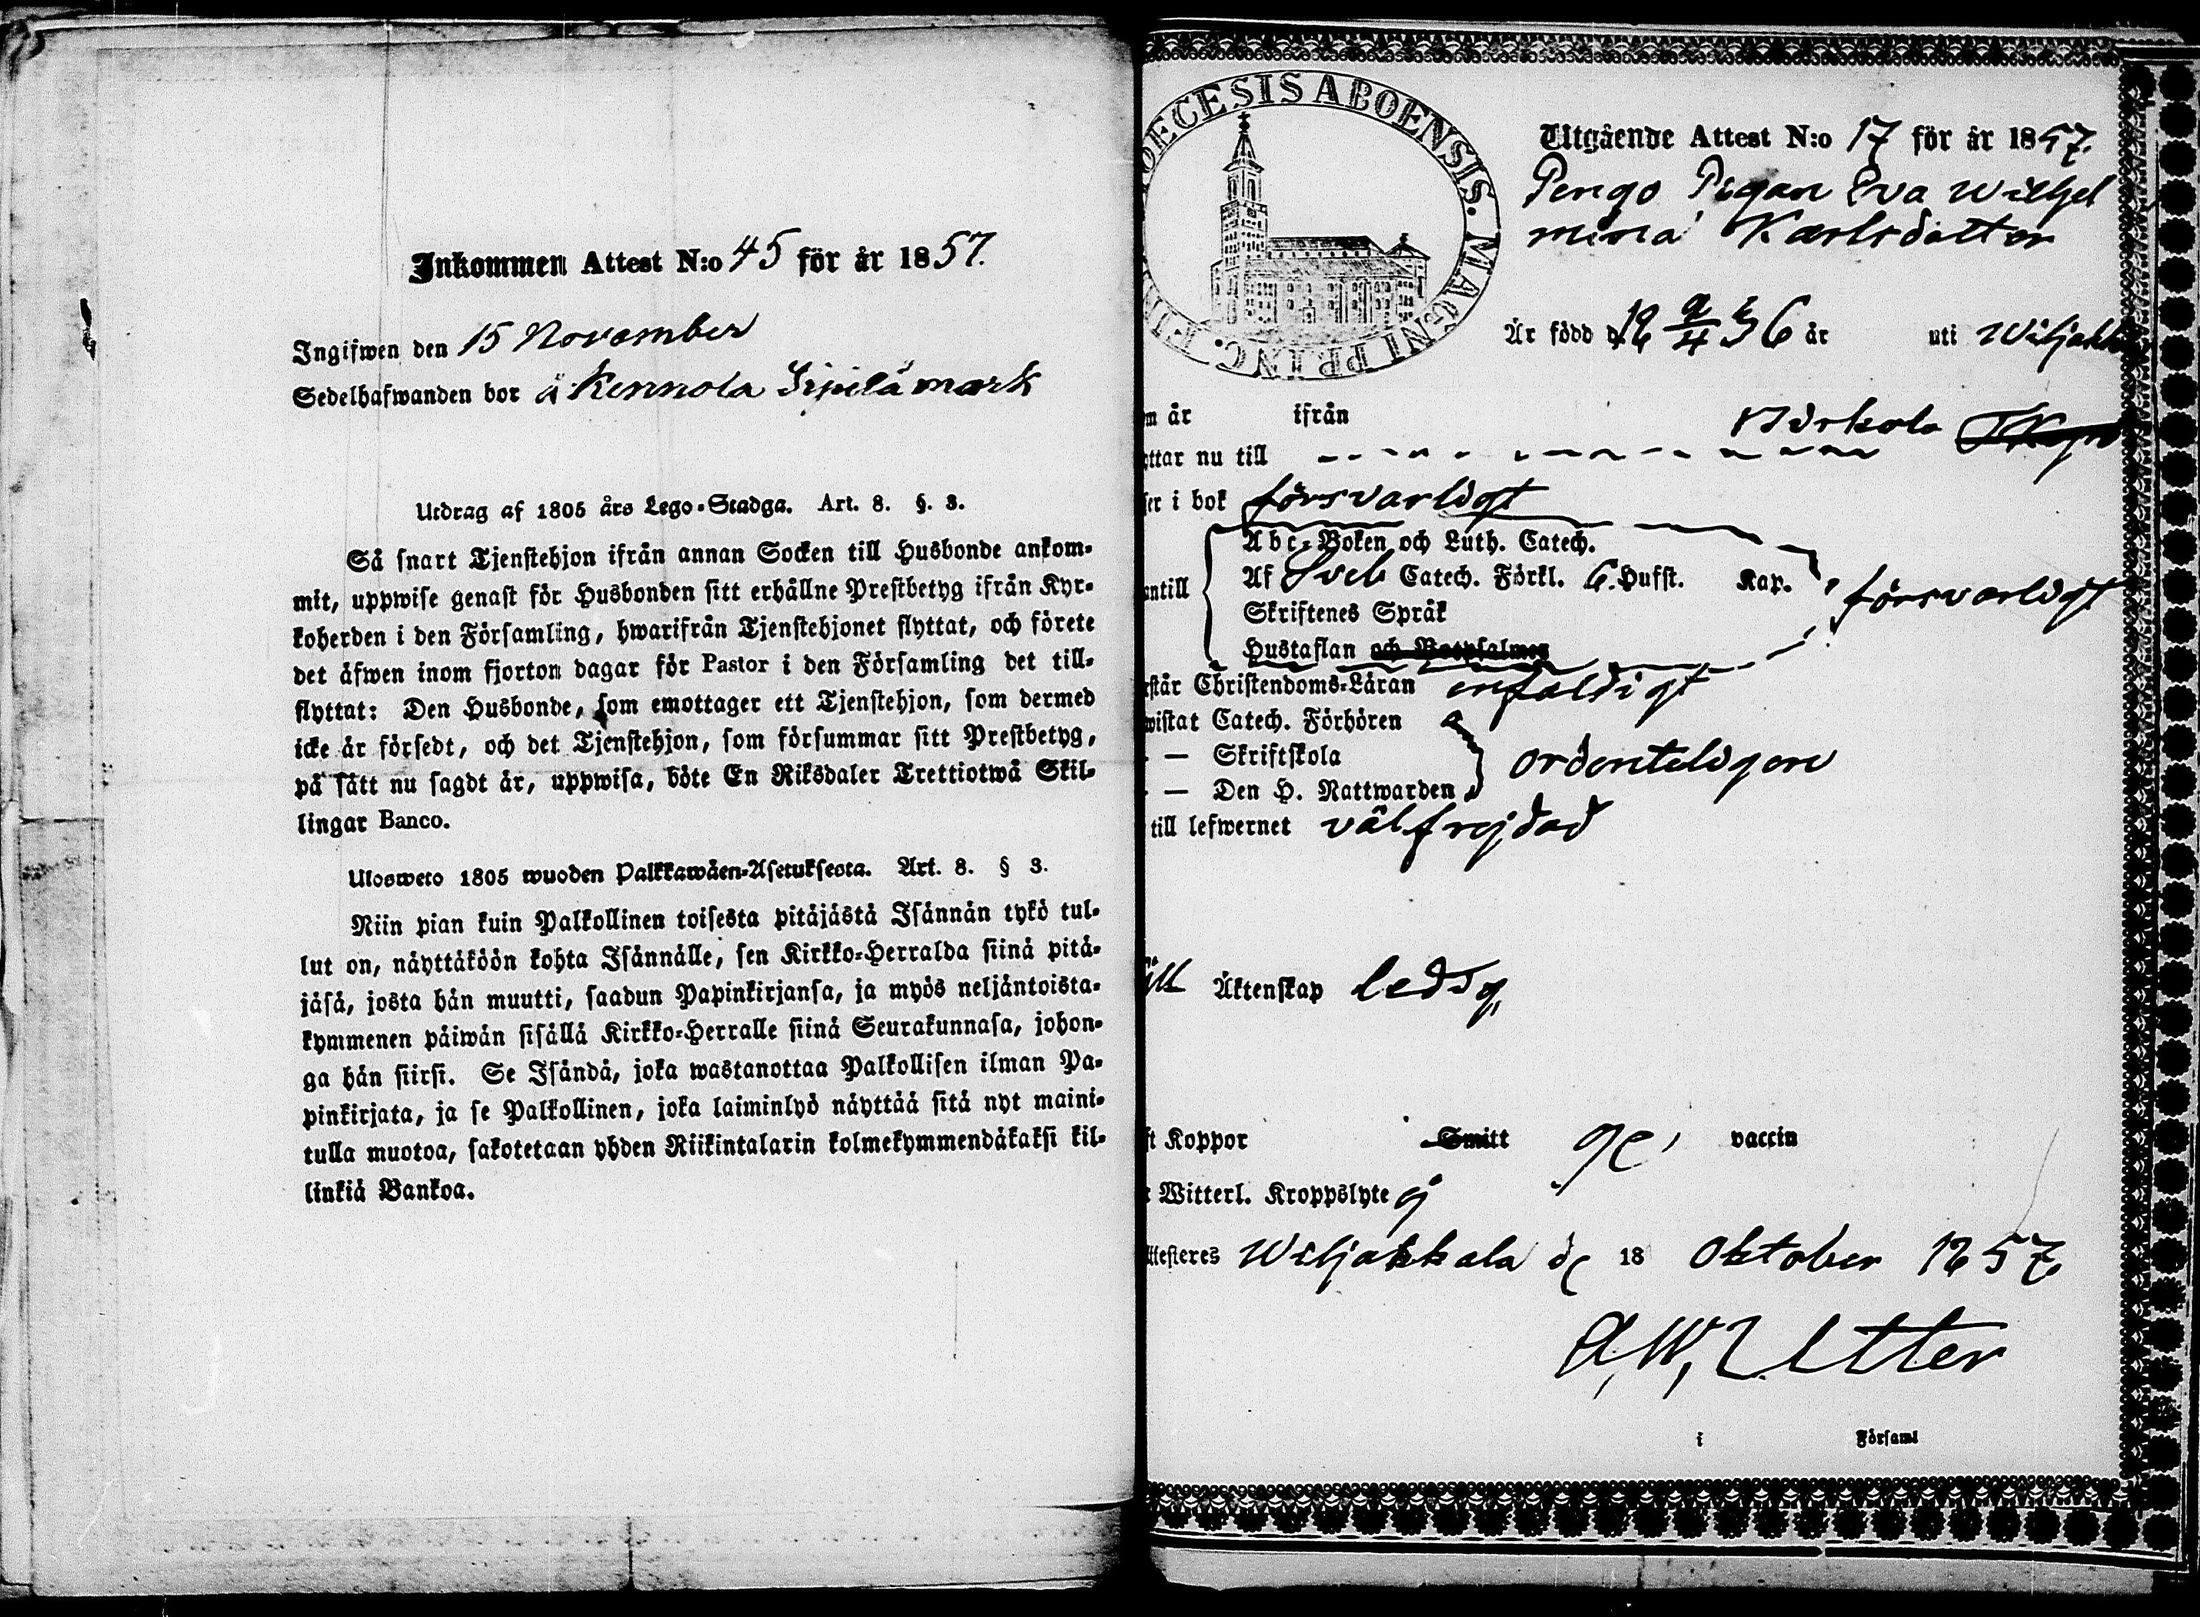 Inkommen Attest N:o 45 för år 1857.
Ingifwen den 15 November
Sedelhafwanden bor å Kennola Sipilä mark
Utdrag af 1805 års Lego-Stadga. Art. 8. §. 3.
Så snart Tjenstehjon ifrån annan Socken till Husbonde ankom-
mit, uppwise genast för Husbonden sitt erhållne Prestbetyg ifrån Kyr-
koherden i den Församling, hwarifrån Tjenstehjonet flyttat, och förete
det äfwen inom fjorton dagar för Pastor i den Församling det till-
flyttat: Den Husbonde, som emottager ett Tjenstehjon, som dermed
icke är försedt, och det Tjenstehjon, som försummar sitt Prestbetyg,
på sätt nu sagdt är, uppwisa, böte En Riksdaler Trettiotwå Skil-
lingar Banco.
Ulosweto 1805 wuoden Palkkawäen-Asetuksesta. Art. 8. § 3.
Niin pian kuin Palkollinen toisesta pitäjästä Isännän tykö tul-
lut on, näyttäköön kohta Isännälle, sen Kirkko-Herralda siinä pitä-
jäsä, josta hän muutti, saadun Papinkirjansa, ja myös neljäntoista-
kymmenen päiwän sisällä Kirkko-Herralle siinä Seurakunnasa, johon-
ga hän siirsi. Se Isändä, joka wastanottaa Palkollisen ilman Pa-
pinkirjata, ja se Palkollinen, joka laiminlyö näyttää sitä nyt maini-
tulla muotoa, sakotetaan yhden Riikintalarin kolmekymmendäkaksi kil-
linkiä Bankoa.
DIOECESIS ABOENSIS. MAGNI PRINC. FIN
Utgående Attest N:o 17 för år 1857.
Pengo Pigan Eva Wilhel
mina Karlsdotter
Är född d. 18 9/4 36 år uti Wiljakk
m år ifrån
yttar nu till Birkala
ser i bok försvarligt
Abc-Boken och Luth. Catech.
antill Af Sveb Catech. Förkl. 6. Hufst. Kap. försvarligt
Skriftenes Språk
Hustaflan och Botpsalmer
rstår Christendoms-Läran enfaldigt
wistat Catech. Förhören
— Skriftskola ordenteligen
— Den H. Nattwarden
till lefwernet välfrejdad
till Äktenskap ledig
ft Koppor Smitt ge, vaccin
Witterl. Kroppslyte ej
Attesteres Wiljakkala d 18 Oktober 1857
A, W, Utter
i Församl